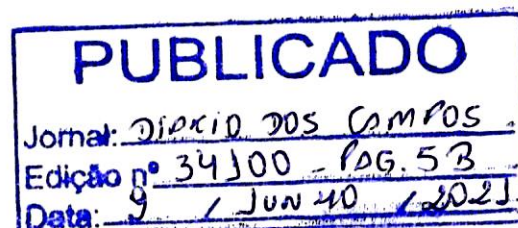 PUBLICADO
Jornal: DIÁRIO DOS CAMPOS
Edição nº 34100 - PÁG. 5B
Data: 9 / JUNHO / 2021